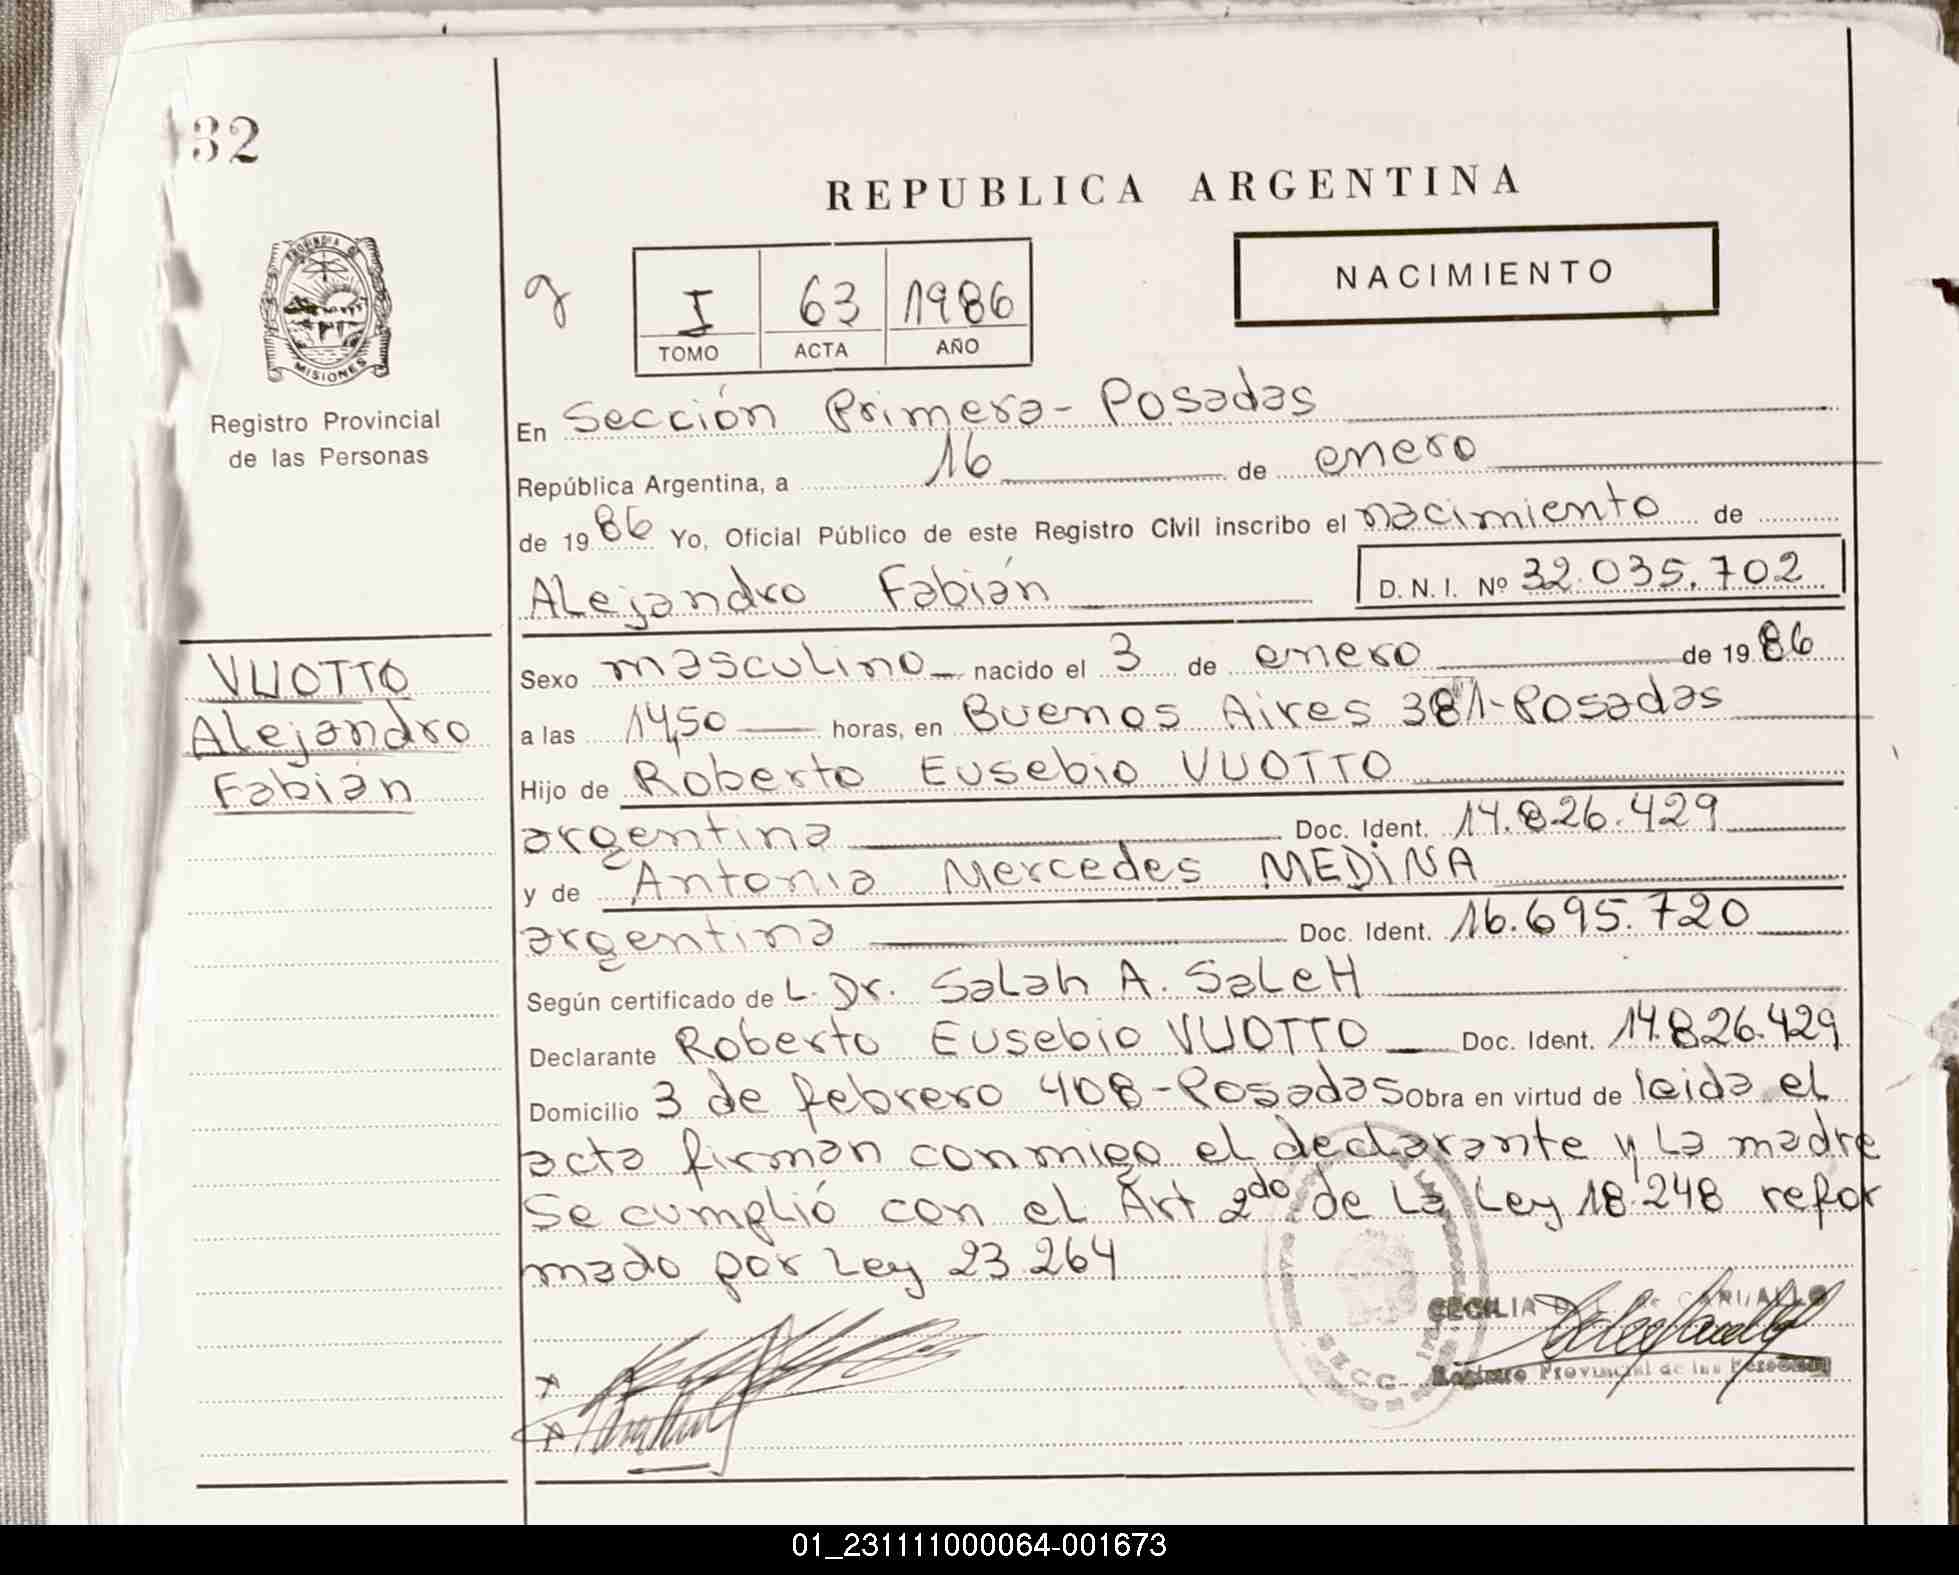 32
REPUBLICA ARGENTINA
PROVINCIA DE
MISIONES
Registro Provincial
de las Personas
I 63 1986
TOMO ACTA AÑO
NACIMIENTO
En Sección Primera - Posadas
República Argentina, a 16 de enero
de 1986 Yo, Oficial Público de este Registro Civil inscribo el nacimiento de
Alejandro Fabián D.N.I. Nº 32.035.702
VUOTTO
Alejandro
Fabián
Sexo masculino nacido el 3 de enero de 1986
a las 14,50 horas, en Buenos Aires 381-Posadas
Hijo de Roberto Eusebio VUOTTO
argentina Doc. Ident. 14.826.429
y de Antonia Mercedes MEDINA
argentina Doc. Ident. 16.695.720
Según certificado de L. Dr. Salah A. SaleH
Declarante Roberto Eusebio VUOTTO Doc. Ident. 14.826.429
Domicilio 3 de febrero 408-Posadas Obra en virtud de leida el
acta firman conmigo el declarante y la madre
Se cumplió con el Art 2do de La Ley 18.248 refor
mado por Ley 23.264
CECILIA
Registro Provincial de las Personas
01_231111000064-001673